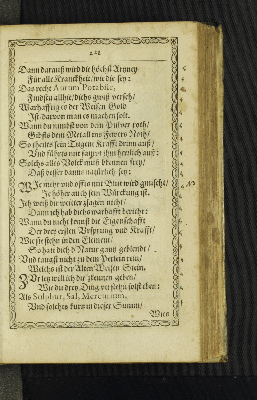 Dann darauß wird die höchst Artzney
Für alle Kranckheit, wie die sey:
Das recht Aurum Potabile,
Findstu allhie, dichs gwiß verseh,
Warhafftig es der Weisen Gold
Ist, darvon man es machen solt.
Wann du nimbst von dem Pulver roth,
Gibsts dem Metall von Fewers Noth,
So theilts sein Tugent Krafft drinn auß,
Und führts mit
Solchs alles Volck muß kennen frey,
Daß dieser dann natürlich sey:
Je mehr und offt es mit Blut wird gmischt,
Je höher auch sein Würckung ist.
Ich weiß dir weiter zsagen nicht,
Dann ich hab dichs warhafft bericht:
Wann du nicht kennst die Eigenschafft
Der drey ersten Ursprung und Krafft,
Wie sie sein in den Element,
So hat dich d'Natur gantz geblendt,
Und taugst nicht zu dem Perlein rein,
Welchs ist der Alten Weisen Stein.
Zur letz will ich die zkennen geben,
Wie du drey Ding verstehn solst eben:
Als Sulphur, Sal, Mercurium,
Und solches kurtz in dieser Summ,
Wies